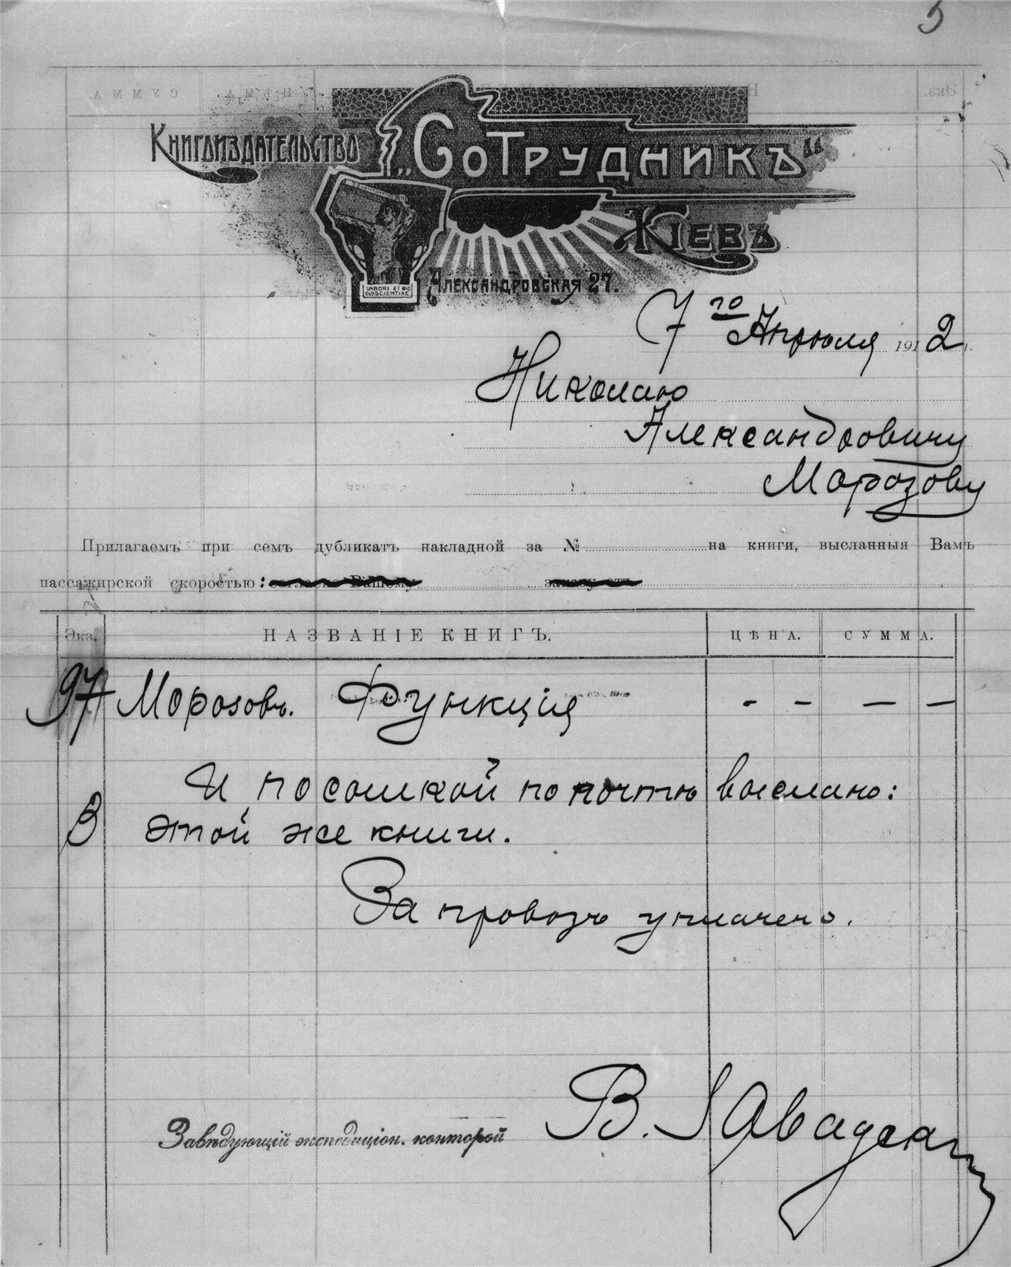 5
Книгоиздательство „Сотрудникъ“
Кіевъ
Александровская 27.
LABORI ET
CONSCIENTIAE
7го Апрѣля 1912 г.
Николаю
Александровичу
Морозову
Прилагаемъ при семъ дубликатъ накладной за № на книги, высланныя Вамъ
пассажирской скоростью:
Экз. НАЗВАНІЕ КНИГЪ. ЦѢНА. СУММА.
97 Морозовъ. Функція - - — —
И посылкой по почтѣ выслано:
3 этой же книги.
За провозъ уплачено.
Завѣдующій экспедиціон. конторой В.